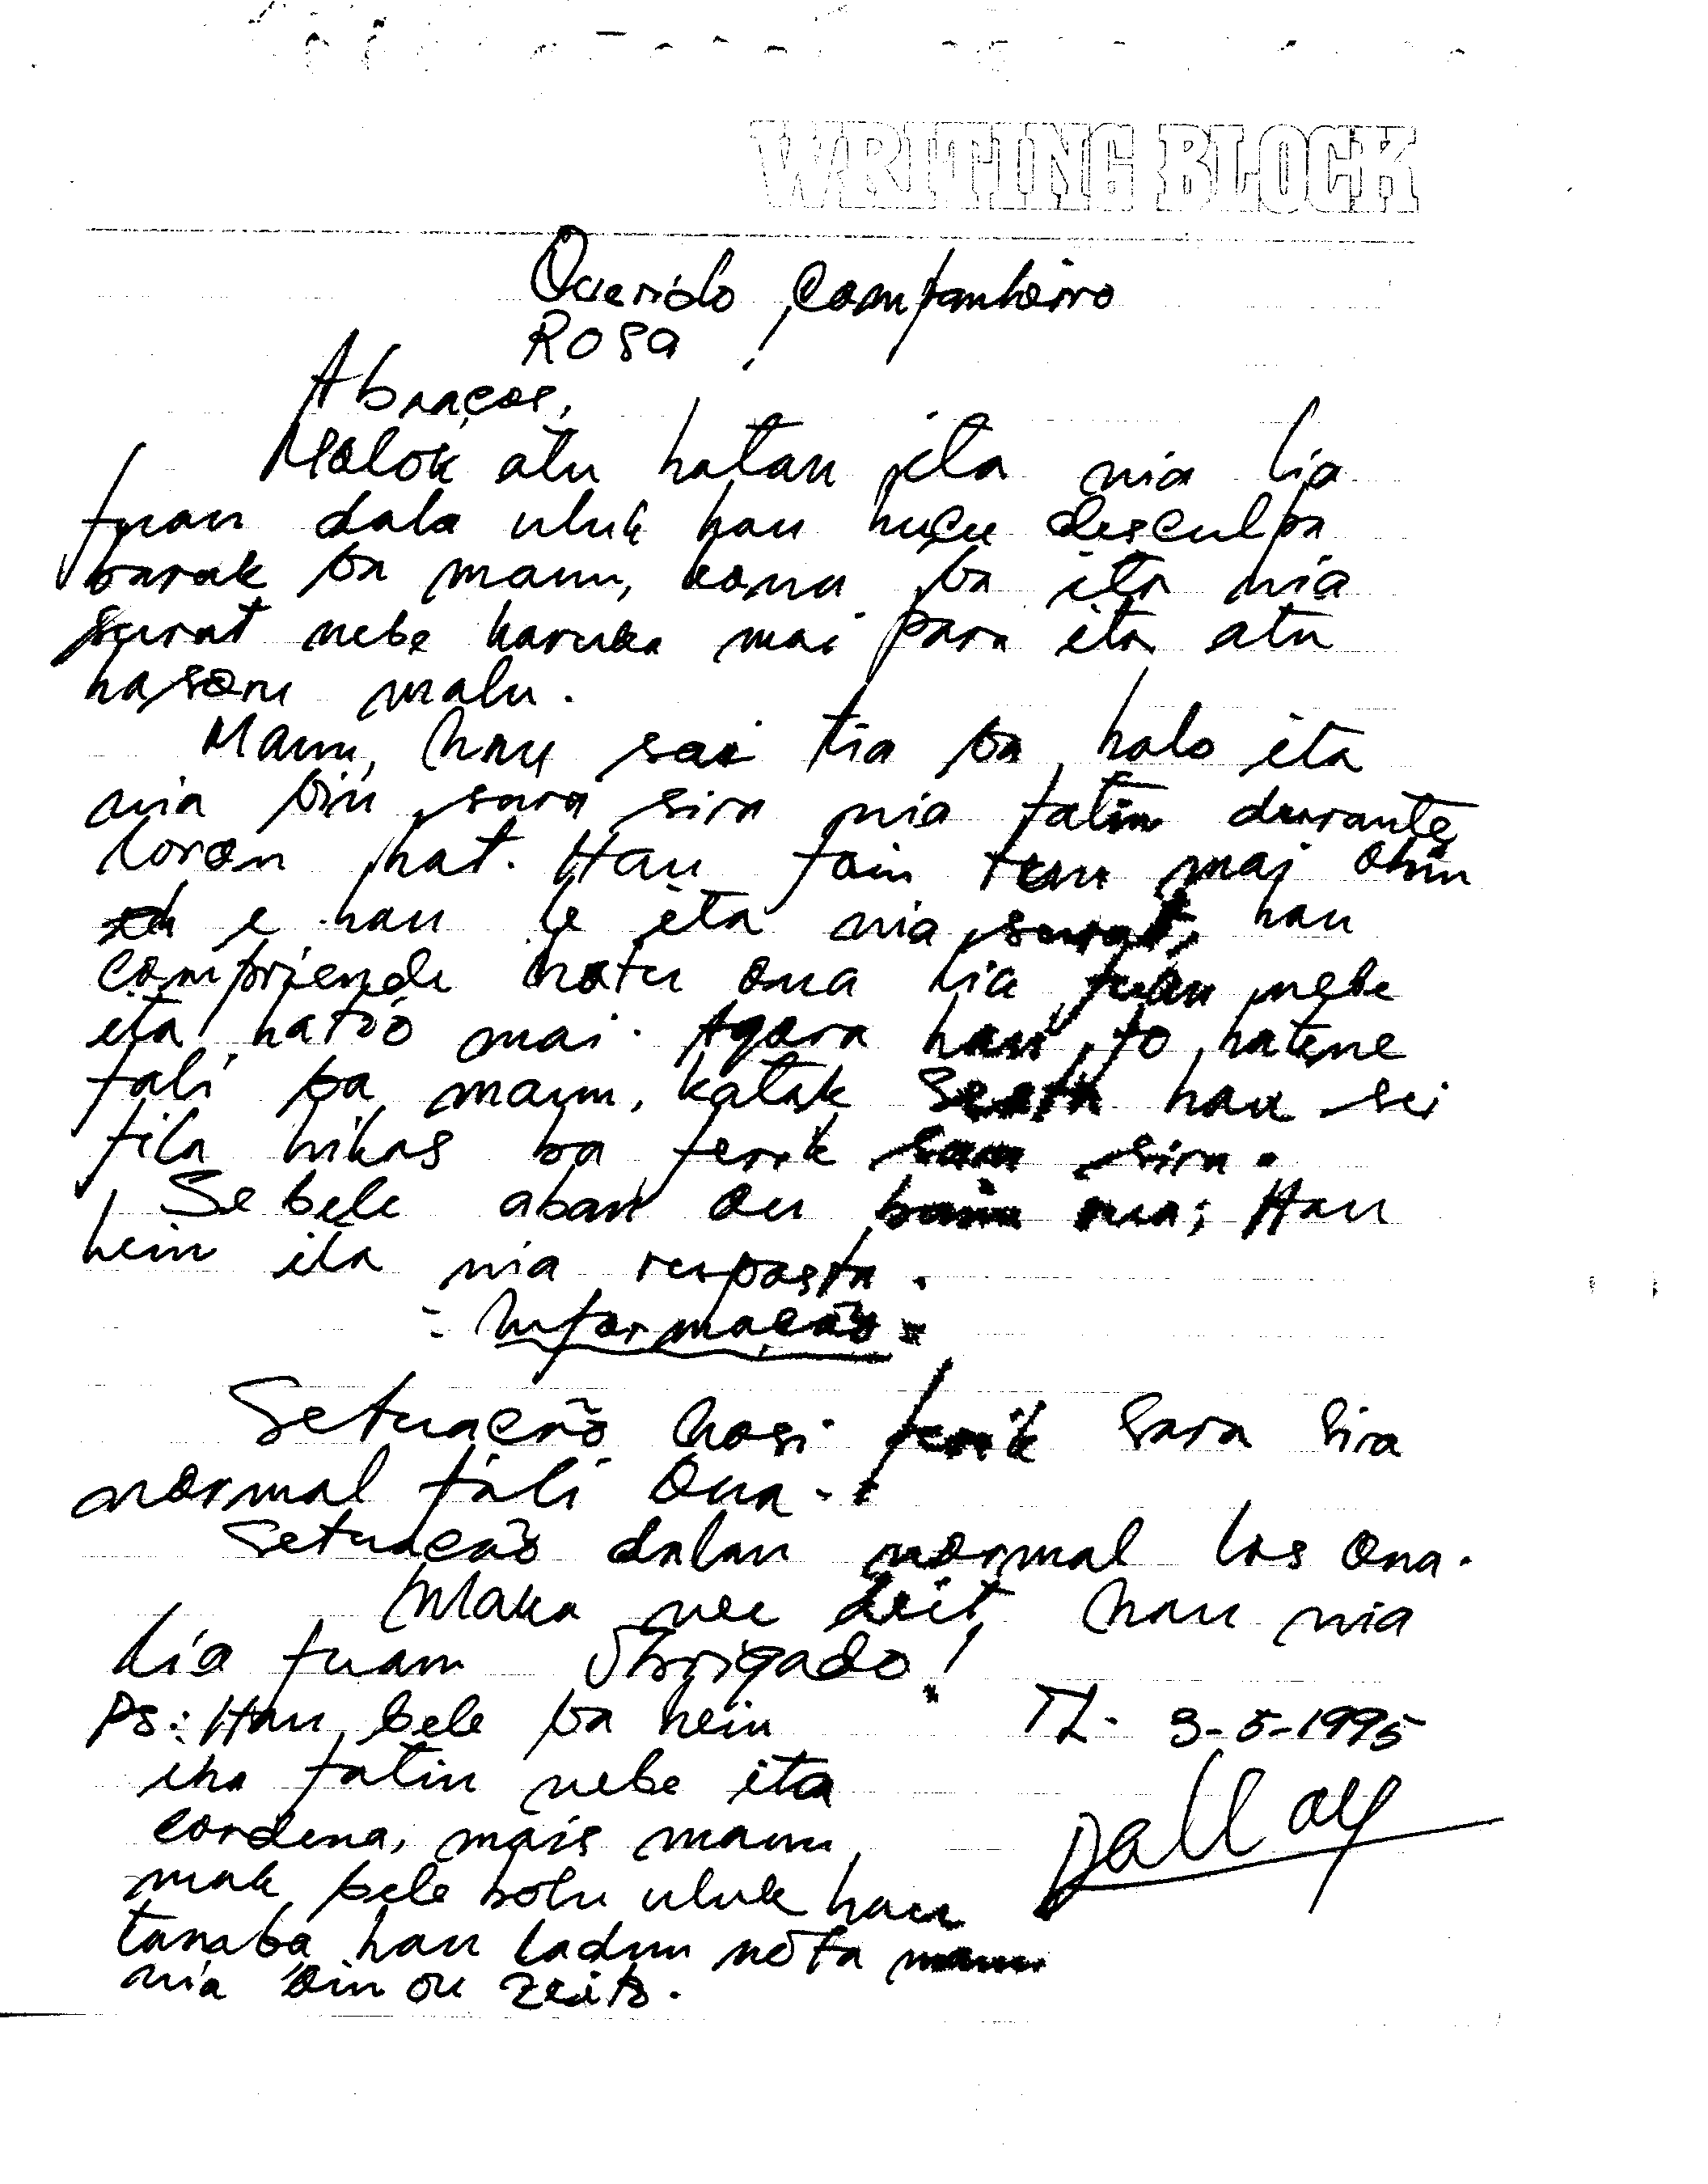 WRITING BLOCK
Querido Companheiro
Rosa!
Abraços,
Molok atu hatan ita nia lia
fuan dala uluk hau husu desculpa
barak ba maun, kona ba ita nia
surat nebe haruka mai para ita atu
hasoru malu.
Maun, hau sai tia ba halo ita
nia bin sara sira nia fatin durante
loron hat. Hau foin tun mai ohin
e hau le ita nia surat, hau
compriende hotu ona lia fuan nebe
ita hatoo mai. Agora hau fo hatene
fali ba maun, katak hau sei
fila hikas ba ferik sara sira.
Se bele aban ou bain rua; Hau
hein ita nia resposta.
= Informação =
Setuação hosi ferik sara sira
normal fali ona.
Setuação dalan normal los ona.
Maka nee deit hau nia
lia fuan Obrigado!
Ps: Hau bele ba hein
TL. 3-5-1995
iha fatin nebe ita
cordena, mais maun
mak bele bolu uluk hau
tanaba hau ladun nota maun
nia oin ou zeito.